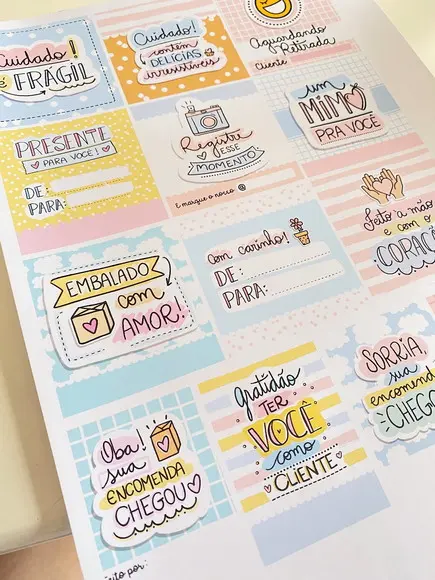 Cuidado!
é FRÁGIL
Cuidado!
contém
DELÍCIAS
irresistíveis
Aguardando
Retirada
Cliente
PRESENTE
PARA VOCÊ!
DE:
PARA:
Registre
ESSE
MOMENTO
E marque o nosso @
um
MIMO
PRA VOCÊ
EMBALADO
com
AMOR!
Com carinho!
DE:
PARA:
Feito a mão
e com o
CORAÇÃ
Oba!
sua
ENCOMENDA
CHEGOU
Gratidão
TER
VOCÊ
como
CLIENTE
SORRIA,
sua
encomend
CHEGO
por: